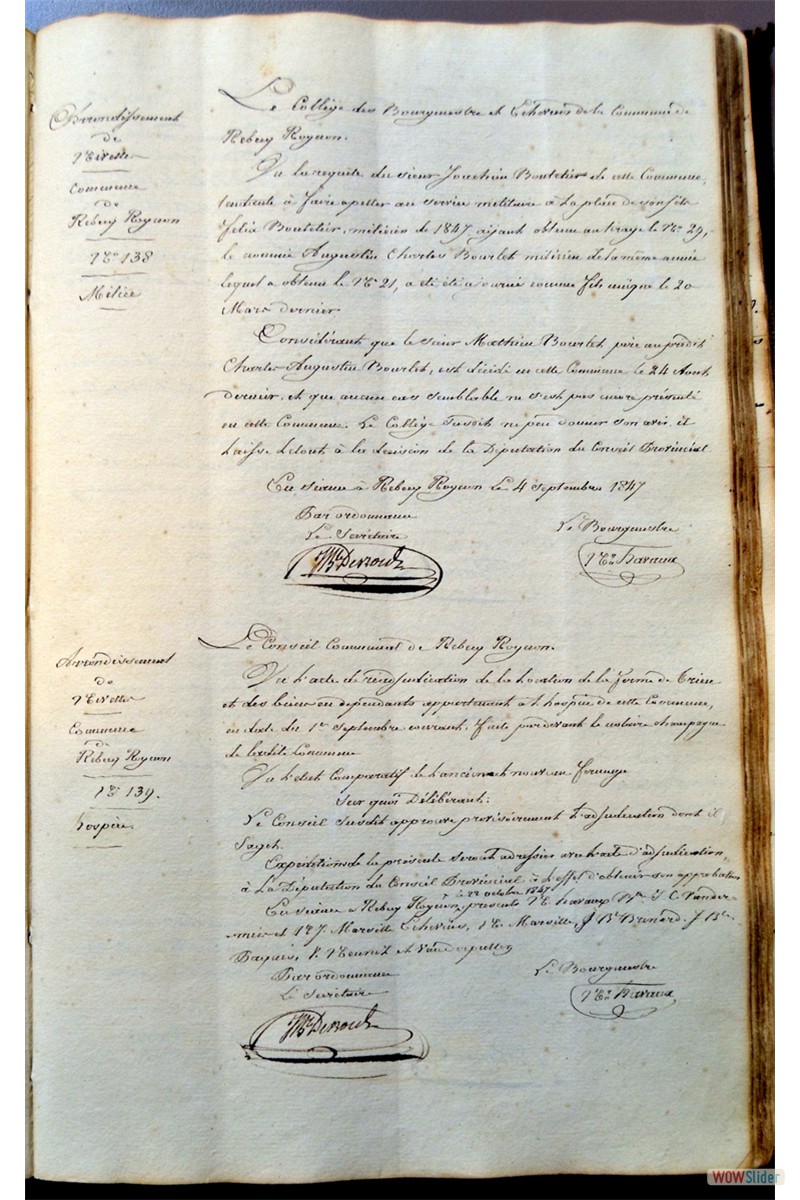 Arrondissement
de
Nivelles
Commune
de
Rebecq Rognon
N° 138
Milice
Le Collège des Bourgmestre et Echevins de la Commune de
Rebecq Rognon.
Vu la requête du sieur Joachim Boutelier de cette Commune,
tendante à faire appeller au service militaire à la place de son fils
Felix Boutelier, milicien de 1847 ayant obtenu au tirage le N° 29,
le nommé Augustin Charles Bourlet milicien de la même année
lequel a obtenu le N° 21, a été ajourné comme fils unique le 20
Mars dernier
Considérant que le sieur Mathieu Bourlet père au prédit
Charles Augustin Bourlet, est décédé en cette Commune le 24 Aout
dernier, et que aucun cas semblable ne s'est pas encore présenté
en cette Commune. Le Collège susdit ne peu donner son avis et
laisse le tout à la décision de la Députation du Conseil Provincial
En séance à Rebecq Rognon le 4 septembre 1847
Par ordonnance
Le Secrétaire
Le Bourgmestre
Arrondissement
de
Nivelles
Commune
de
Rebecq Rognon
N° 139.
hospice
Le Conseil Communal de Rebecq Rognon.
Vu l'acte de réadjudication de la location de la ferme de
et des biens en dépendants appartenant à l'hospice de cette Commune,
en date du 1er septembre courant, faite pardevant le notaire Champagne
de ladite Commune
Vu l'état Comparatif de l'ancien et nouveau fermage
Sur quoi Délibérant:
Le Conseil susdit approuve provisoirement l'adjudication dont il
s'agit.
Expéditions de la présente seront adressées avec l'acte d'adjudication,
à La Députation du Conseil Provincial à l'effet d'obtenir son approbation
le 22 octobre 1847
En séance à Rebecq Rognon, présents N. Havaux Bre J. C. Vander-
et Marville Echevins, Marville, J Bte J Bte
et
Par ordonnance
Le Secrétaire
Le Bourgmestre
WOWSlider